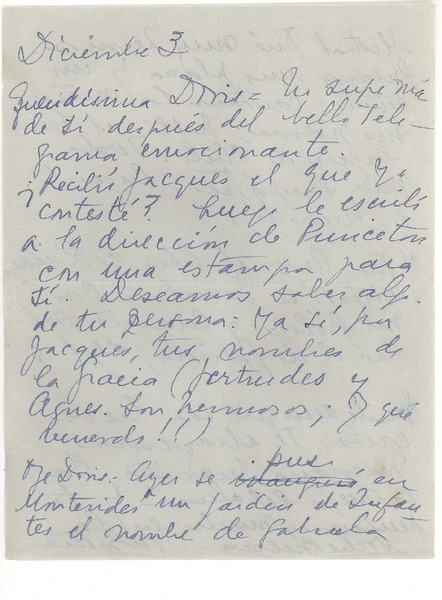 Diciembre 3
Queridísima Doris = No supe más
de tí después del bello Tele-
grama emocionante.
¿Recibió Jacques el que yo
contesté? Luego le escribí
a la dirección de Princeton
con una estampa para
tí. Deseamos saber algo
de tu persona: Ya sé, por
Jacques, tus nombres de
la gracia (Gertrudes y
Agnes. Son hermosos; y qué
recuerdo!!!)
Oye Doris: Ayer se puso en
Montevideo un jardín de Infan-
tes el nombre de Gabriela